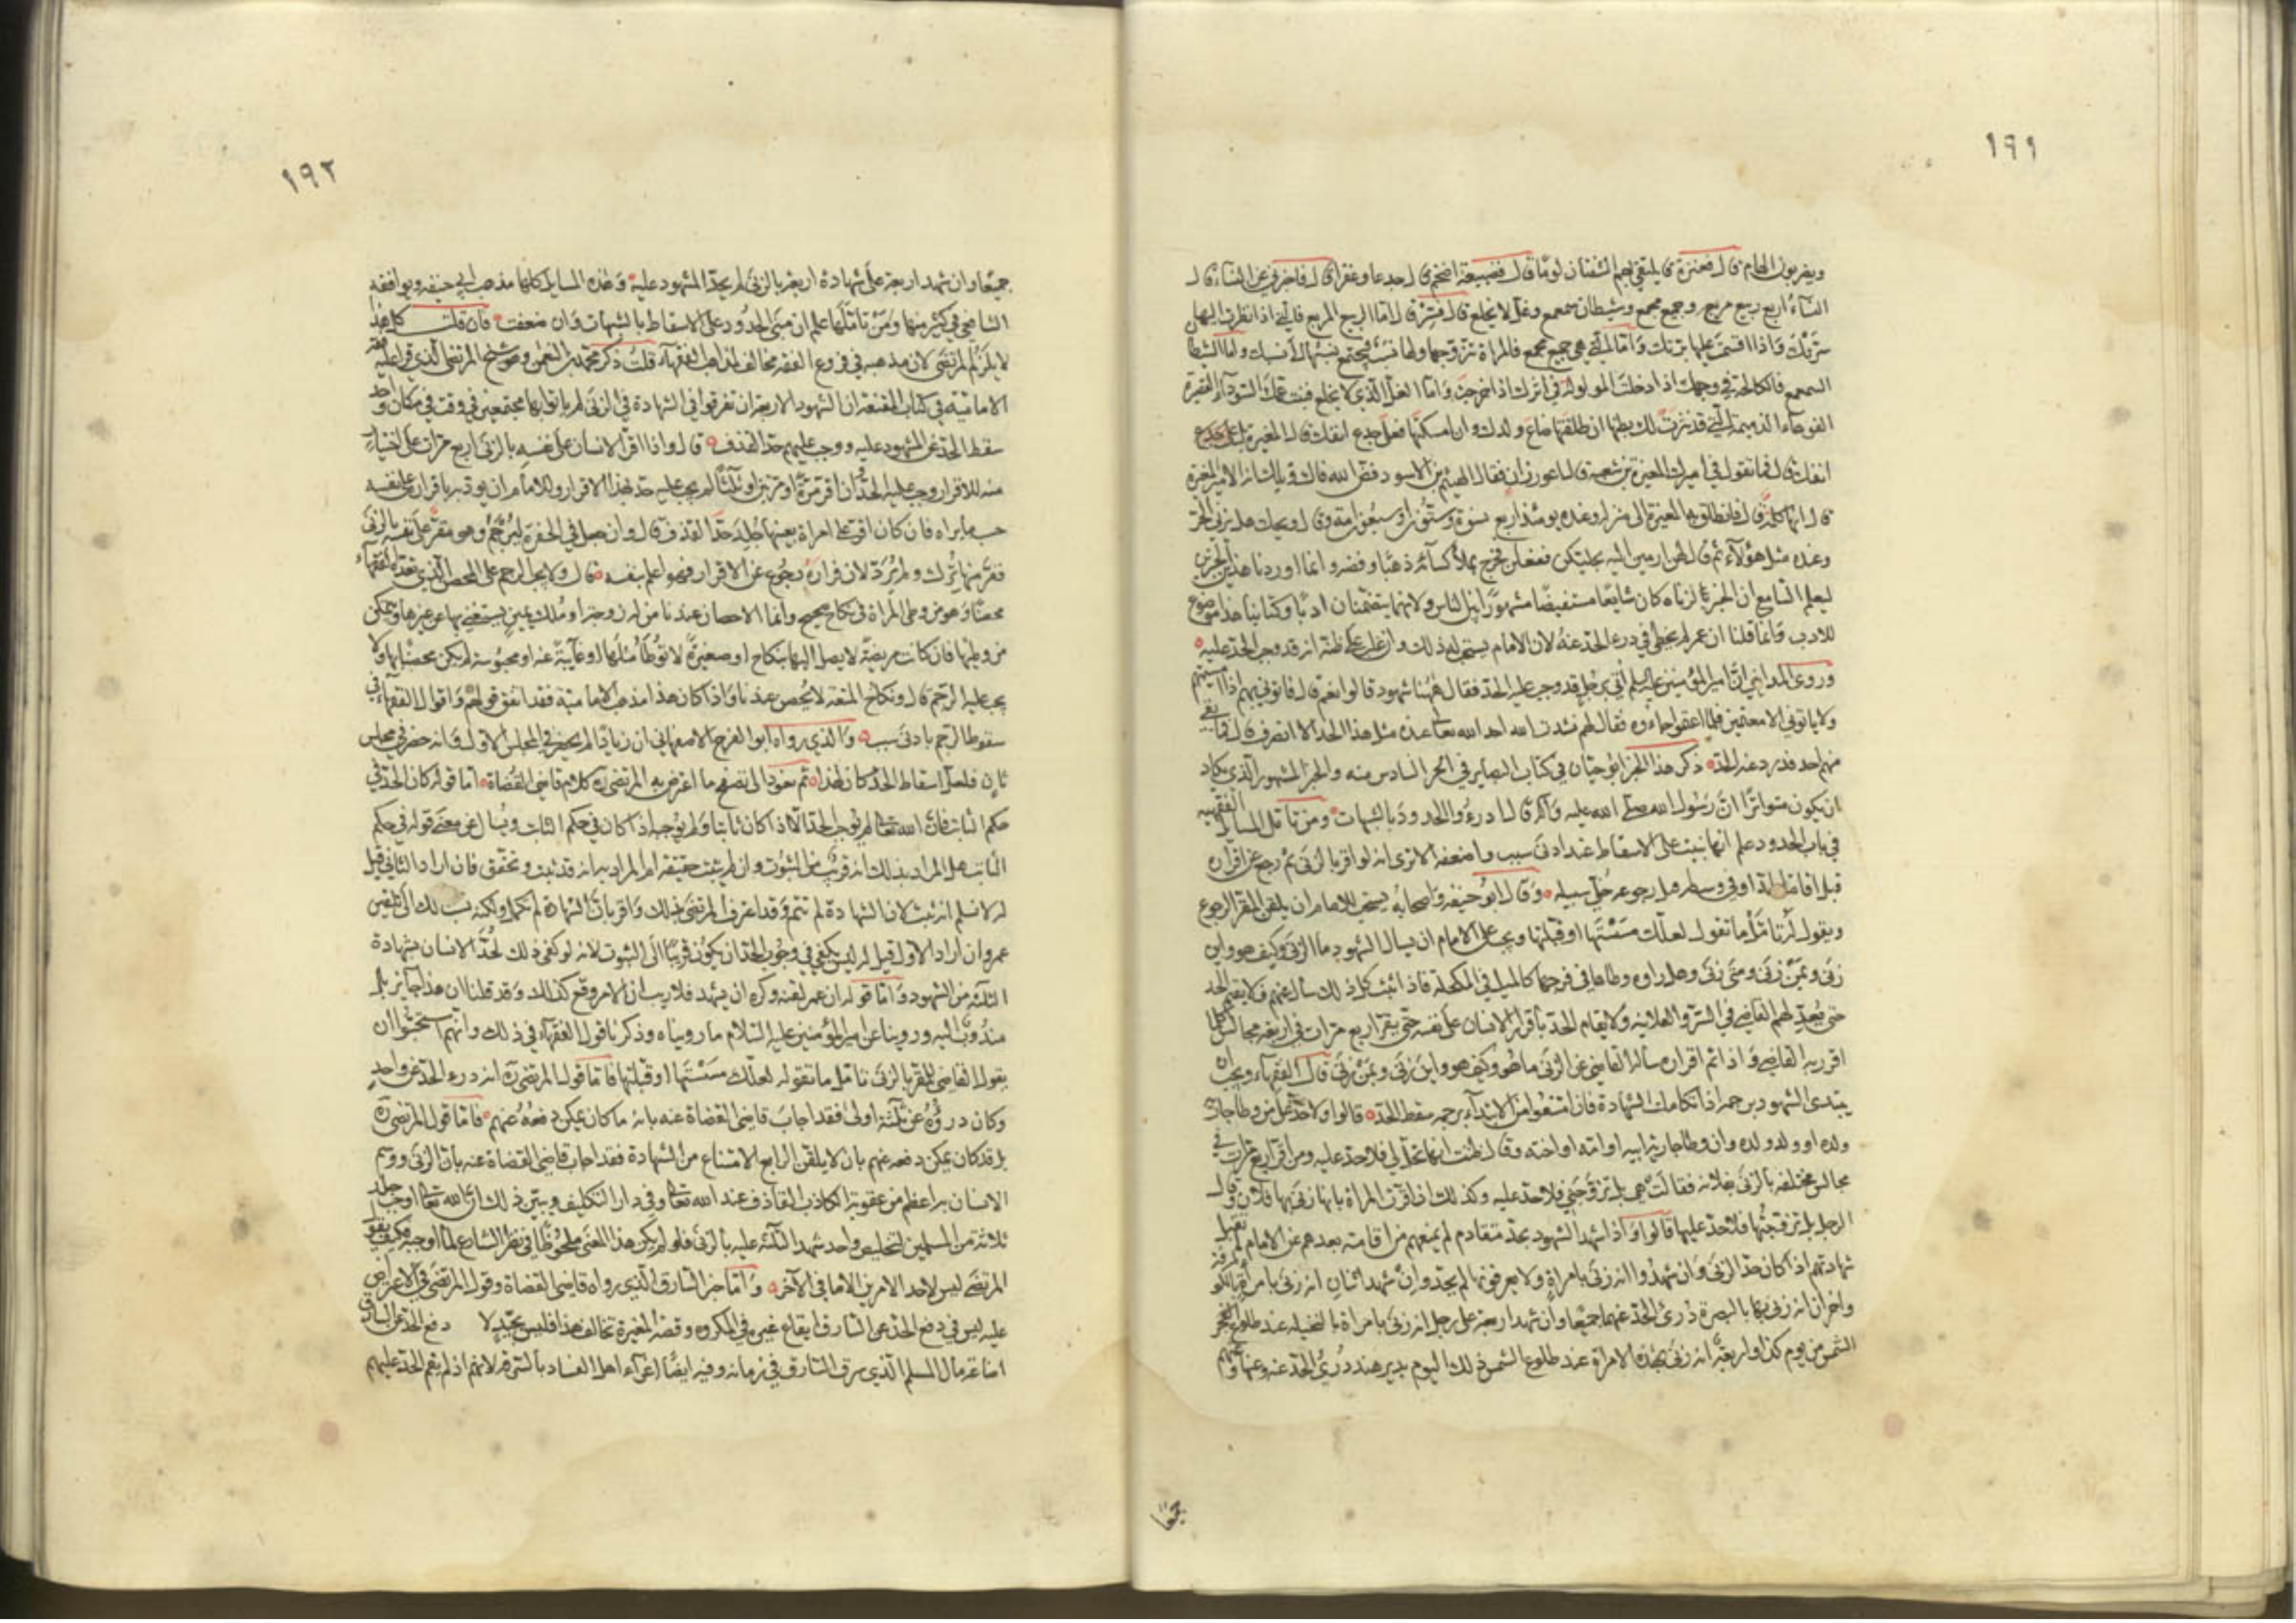 ١٩١
ويضربون الهام قال فعنزة قال يلتقي بهم الشفتان لوما قال فضبيعة اضخم قال جدعا وعقرا قال فاخبرني عن النساء قال
النساء اربع ربيع مربع وجميع مجمع وشيطان سمعمع وغل لا يخلع قال فسر قال اما الربيع المربع فالتي اذا نظرت اليها
سرتك واذا اقسمت عليها برتك واما التي هي جميع مجمع فالمراة تتزوجها ولها نسب فيجتمع نسبها الى نسبك واما الشيطان
السمعمع فالكالحة في وجهك اذا دخلت المولولة في اثرك اذا خرجت واما الغل الذي لا يخلع فبنت عمك السوداء القصيرة
الفوهاء الدميمة التي قد نثرت لك بطنها ان طلقتها ضاع ولدك وان امسكتها فعلى جدع انفك قال المغيرة بل على جدع
انفك قال فما تقول في اميرك المغيرة بن شعبة قال اعور زان فقال الهيثم بن الاسود فض الله فاك ويلك انه الامير المغيرة
قال انها كلمة قال فانطلق به المغيرة الى منزله وعنده يومئذ اربع نسوة وستون او سبعون امة وقال ويحك هل يزني الحر
وعنده مثل هؤلاء ثم قال لهن ارمين اليه بحليكن ففعلن فخرج بملأ كسائه ذهبا وفضة وانما اوردنا هذين الخبرين
ليعلم السامع ان الخبر بالزناه كان شايعا مستفيضا مشهورا بين الناس ولانهما يتضمنان ادبا وكتابنا هذا موضوع
للادب وانما قلنا ان عمر لم يخطئ في درء الحد عنه لان الامام يستحب له ذلك وان غلب على ظنه انه قد وجب الحد عليه
وروى المدايني ان امير المؤمنين عليه السلم اتي برجل قد وجب عليه الحد فقال أههنا شهود قالوا نعم قال فاتوني بهم اذا امسيتم
ولا ياتوني الا معتمين فلما اعتموا جاءوه فقال لهم نشدت الله احد الله تعالى عنده مثل هذا الحد الا انصرف قال فما بقي
منهم احد فدرء عنه الحد ذكر هذا الخبر ابو حيان في كتاب البصاير في الجزء السادس منه والخبر المشهور الذي يكاد
ان يكون متواترا ان رسول الله صلى الله عليه وآله قال ادرءوا الحدود بالشبهات ومن تامل المسايل الفقهيه
في باب الحدود علم انها بنيت على الاسقاط عند ادنى سبب واضعفه الا ترى انه لو اقر بالزنى ثم رجع عن اقراره
قبل اقامة الحد او في وسطه قبل رجوعه خلي سبيله وقال ابو حنيفه واصحابه يستحب للامام ان يلقن المقر الرجوع
ويقول له تأمل ما تقول لعلك مسستها او قبلتها ويجب على الامام ان يسال الشهود ما الزنى وكيف هو واين
زنى وبمن زنى ومتى زنى وهل راوه وطاها في فرجها كالميل في المكحلة فاذا اثبت كل ذلك سال عنهم فلا يقيم الحد
حتى يعدلهم القاضي في السر والعلانيه ولا يقام الحد باقرار الانسان على نفسه حتى يقر اربع مرات في اربعة مجالس كلما
اقر رده القاضي واذا تم اقراره ساله القاضي عن الزنى ما هو وكيف هو واين زنى وبمن زنى قال الفقهاء ويجب ان
يبتدى الشهود برجمه اذا تكاملت الشهادة فان امتنعوا من الابتداء برجمه سقط الحد قالوا ولا حد على من وطئ جارية
ولده او ولد ولده وان وطئ جارية ابيه او امه او اخته وقال ظننت انها تحل لي فلا حد عليه ومن اقر اربع مرات في
مجالس مختلفه بالزنى بفلانه فقالت هي بل تزوجني فلا حد عليه وكذلك ان اقرت المراة بانها زنى بها فلان وقال
الرجل بل تزوجتها فلا حد عليها قالوا واذا شهد الشهود بحد متقادم لم يمنعهم من اقامته بعدهم عن الامام لم تقبل
شهادتهم اذا كان حد الزنى وان شهدوا انه زنى بامراة ولا يعرفونها لم يحد وان شهد اثنان انه زنى بامراة بالكوفه
واخران انه زنى بها بالبصرة درئ الحد عنهما جميعا وان شهد اربعة على رجل انه زنى بامراة بالنخيله عند طلوع الفجر
الشمس من يوم كذا واربعة انه زنى بهذه الامراة عند طلوع الشمس ذلك اليوم بدير هند درئ الحد عنه وعنها وعنهم
جميعا
١٩٢
جميعا وان شهد اربعة على شهادة اربعة بالزنى لم يحد المشهود عليه وهذه المسايل كلها مذهب ابي حنيفه ويوافقه
الشافعي في كثير منها ومن تاملها علم ان مبنى الحدود على الاسقاط بالشبهات وان ضعفت فان قلت كل هذا
لا يلزم المرتضى لان مذهبه في فروع الفقه مخالف لمذاهب الفقهاء قلت ذكر محمد بن النعمن وهو شيخ المرتضى الذي قرا عليه فقه
الامامية في كتاب المقنعة ان الشهود الاربعة ان تفرقوا في الشهادة في الزنى لم ياتوا بها مجتمعين في وقت في مكان واحد
سقط الحد عن المشهود عليه ووجب عليهم حد القذف قال واذا اقر الانسان على نفسه بالزنى اربع مرات على اختيار
منه للاقرار وجب عليه الحد وان اقر مرة او مرتين او ثلثا لم يجب عليه حد بهذا الاقرار وللامام ان يؤدبه باقراره على نفسه
حسب ما يراه فان كان اقر على امراة بعينها جلد حد القذف قال وان جعل في الحفرة ليرجم وهو مقر على نفسه بالزنى
ففر منها ترك ولم يرد لان فراره رجوع عن الاقرار فهو اعلم بنفسه قال ولا يجب الرجم على المحصن الذي يعده الفقهاء
محصنا وهو من وطئ امراة في نكاح صحيح وانما الاحصان عندنا من له زوجة او ملك يمين يستغني بها عن غيرها ويتمكن
من وطئها فان كانت مريضة لا يصل اليها بنكاح او صغيرة لا توطأ مثلها او غايبة عنه او محبوسة لم يكن محصنا بها ولا
يجب عليه الرجم قال ونكاح المتعه لا يحصن عندنا واذا كان هذا مذهب الامامية فقد اتفق قولهم واقوال الفقهاء في
سقوط الرجم بادنى سبب والذي رواه ابو الفرج الاصفهاني ان زيادا لم يحضر في المجلس الاول وانه حضر في مجلس
ثان فلعل اسقاط الحد كان لهذا ثم نعود الى تصفح ما اعترض به المرتضى ره كلام قاضي القضاة اما قوله كان الحد في
حكم الثابت فان الله تعالى لم يوجب الحد الا اذا كان ثابتا ولم يوجبه اذا كان في حكم الثابت ويسال عن معنى قوله في حكم
الثابت هل المراد بذلك انه قريب من الثبوت وان لم يثبت حقيقة ام المراد به انه قد ثبت وتحقق فان اراد الثاني قيل
له لا نسلم انه ثبت لان الشهادة لم تتم وقد اعترف المرتضى بذلك واقر بان الشهادة لم تكمل ولكنه نسب ذلك الى تلقين
عمر وان اراد الاول قيل له ليس يكفي في وجوب الحد ان يكون قريبا الى الثبوت لانه لو كفى ذلك لحد الانسان بشهادة
الثلثة من الشهود واما قوله ان عمر لقنه وكره ان يشهد فلا ريب ان الامر وقع كذلك وقد قلنا ان هذا جايز بل
مندوب اليه وروينا عن امير المؤمنين عليه السلام ما رويناه وذكرنا قول الفقهاء في ذلك وانهم استحبوا ان
يقول القاضي للمقر بالزنى تامل ما تقوله لعلك مسستها او قبلتها فاما قول المرتضى ره انه درء الحد عن واحد
وكان درؤه عن ثلثة اولى فقد اجاب قاضي القضاة عنه بانه ما كان يمكن دفعه عنهم فاما قول المرتضى ره
بل قد كان يمكن دفعه عنهم بان لا يلقن الرابع الامتناع من الشهادة فقد اجاب قاضي القضاة عنه بان الزنى ووسم
الانسان به اعظم من عقوبة الكاذب القاذف عند الله تعالى وفي دار التكليف ويبين ذلك ان الله تعالى اوجب جلد
ثلاثة من المسلمين لتخليص واحد شهد الثلثة عليه بالزنى فلو لم يكن هذا المعنى ملحوظا في نظر الشارع لما اوجبه فكيف يقول
المرتضى ليس لاحد الامرين الا ما في الآخر واما خبر السارق الذي رواه قاضي القضاة وقول المرتضى في الاعتراض
عليه ليس في دفع الحد عن السارق ايقاع غيره في المكروه وقصة المغيرة تخالف هذا فليس بجيد لا دفع الحد عن السارق
اضاعة مال المسلم الذي سرق السارق في زمانه وفيه ايضا اغراء اهل الفساد بالسرقة لانهم اذا لم يقم الحد عليهم